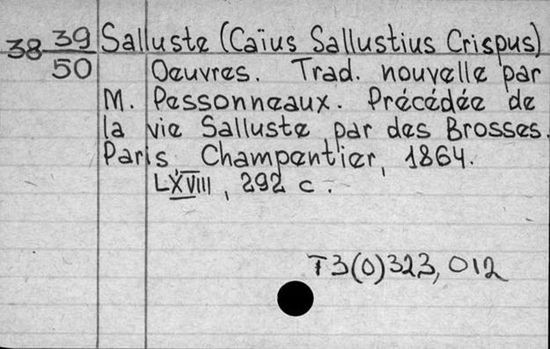 38 39/50 Salluste (Caïus Sallustius Crispus)
Oeuvres. Trad. nouvelle par
M. Pessonneaux. Précédée de
la vie Salluste par des Brosses.
Paris, Champentier, 1864.
LXVIII, 292 c.
T3(0)323,012